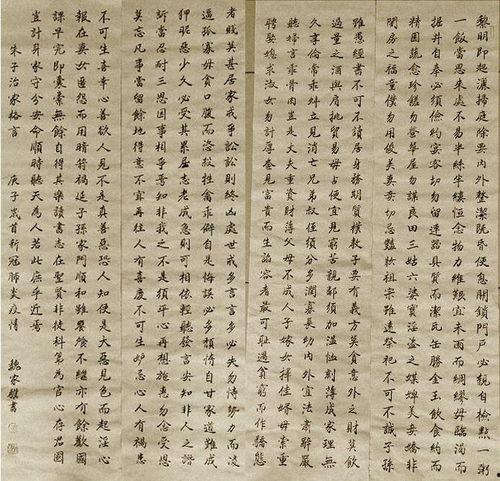 黎明即起灑掃庭除要內外整潔既昏便息關鎖門户必親自檢點一粥
一飯當思來處不易半絲半縷恒念物力維艱宜未雨而綢繆毋臨渴而
掘井自奉必須儉約宴客切勿留連器具質而潔瓦缶勝金玉飲食約而
精園蔬愈珍饈勿營華屋勿謀良田三姑六婆實淫盜之媒婢美妾嬌非
閨房之福童僕勿用俊美妻妾切忌艷妝祖宗雖遠祭祀不可不誠子孫
雖愚經書不可不讀居身務期質樸教子要有義方莫貪意外之財莫飲
過量之酒與肩挑貿易毋占便宜見窮苦親鄰須加溫恤刻薄成家理無
久享倫常乖舛立見消亡兄弟叔侄須分多潤寡長幼內外宜法肅辭嚴
聽婦言乖骨肉豈是丈夫重資財薄父母不成人子嫁女擇佳婿毋索重
聘娶媳求淑女勿計厚奩見富貴而生諂容者最可恥遇貧窮而作驕態
者賤莫甚居家戒爭訟訟則終凶處世戒多言言多必失勿恃勢力而凌
逼孤寡毋貪口腹而恣殺牲禽乖僻自是悔誤必多頹惰自甘家道難成
狎昵惡少久必受其累屈志老成急則可相依輕聽發言安知非人之譖
訴當忍耐三思因事相爭焉知非我之不是須平心再想施惠勿念受恩
莫忘凡事當留餘地得意不宜再往人有喜慶不可生妒忌心人有禍患
不可生喜幸心善欲人見不是真善惡恐人知便是大惡見色而起淫心
報在妻女匿怨而用暗箭禍延子孫家門順和雖饔飧不繼亦有餘歡國
課早完即囊橐無餘自得其樂讀書志在聖賢非徒科第為官心存君國
豈計身家守分安命順時聽天為人若此庶乎近焉
朱子治家格言 庚子歲首新冠肺炎疫情 魏家 書